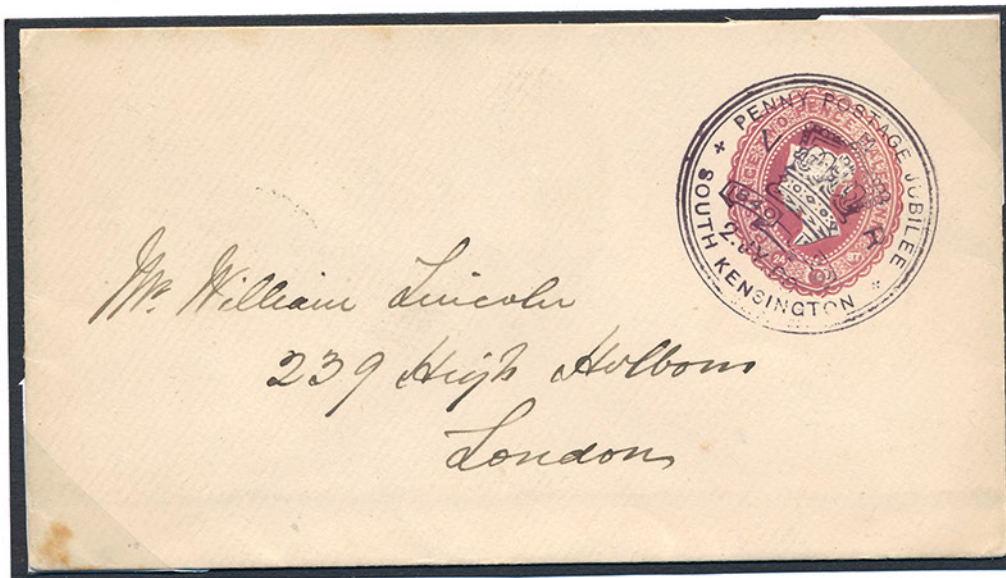 PENNY POSTAGE JUBILEE
SOUTH KENSINGTON
2. JY
Mr. William Lincoln
239 High Holborn
London